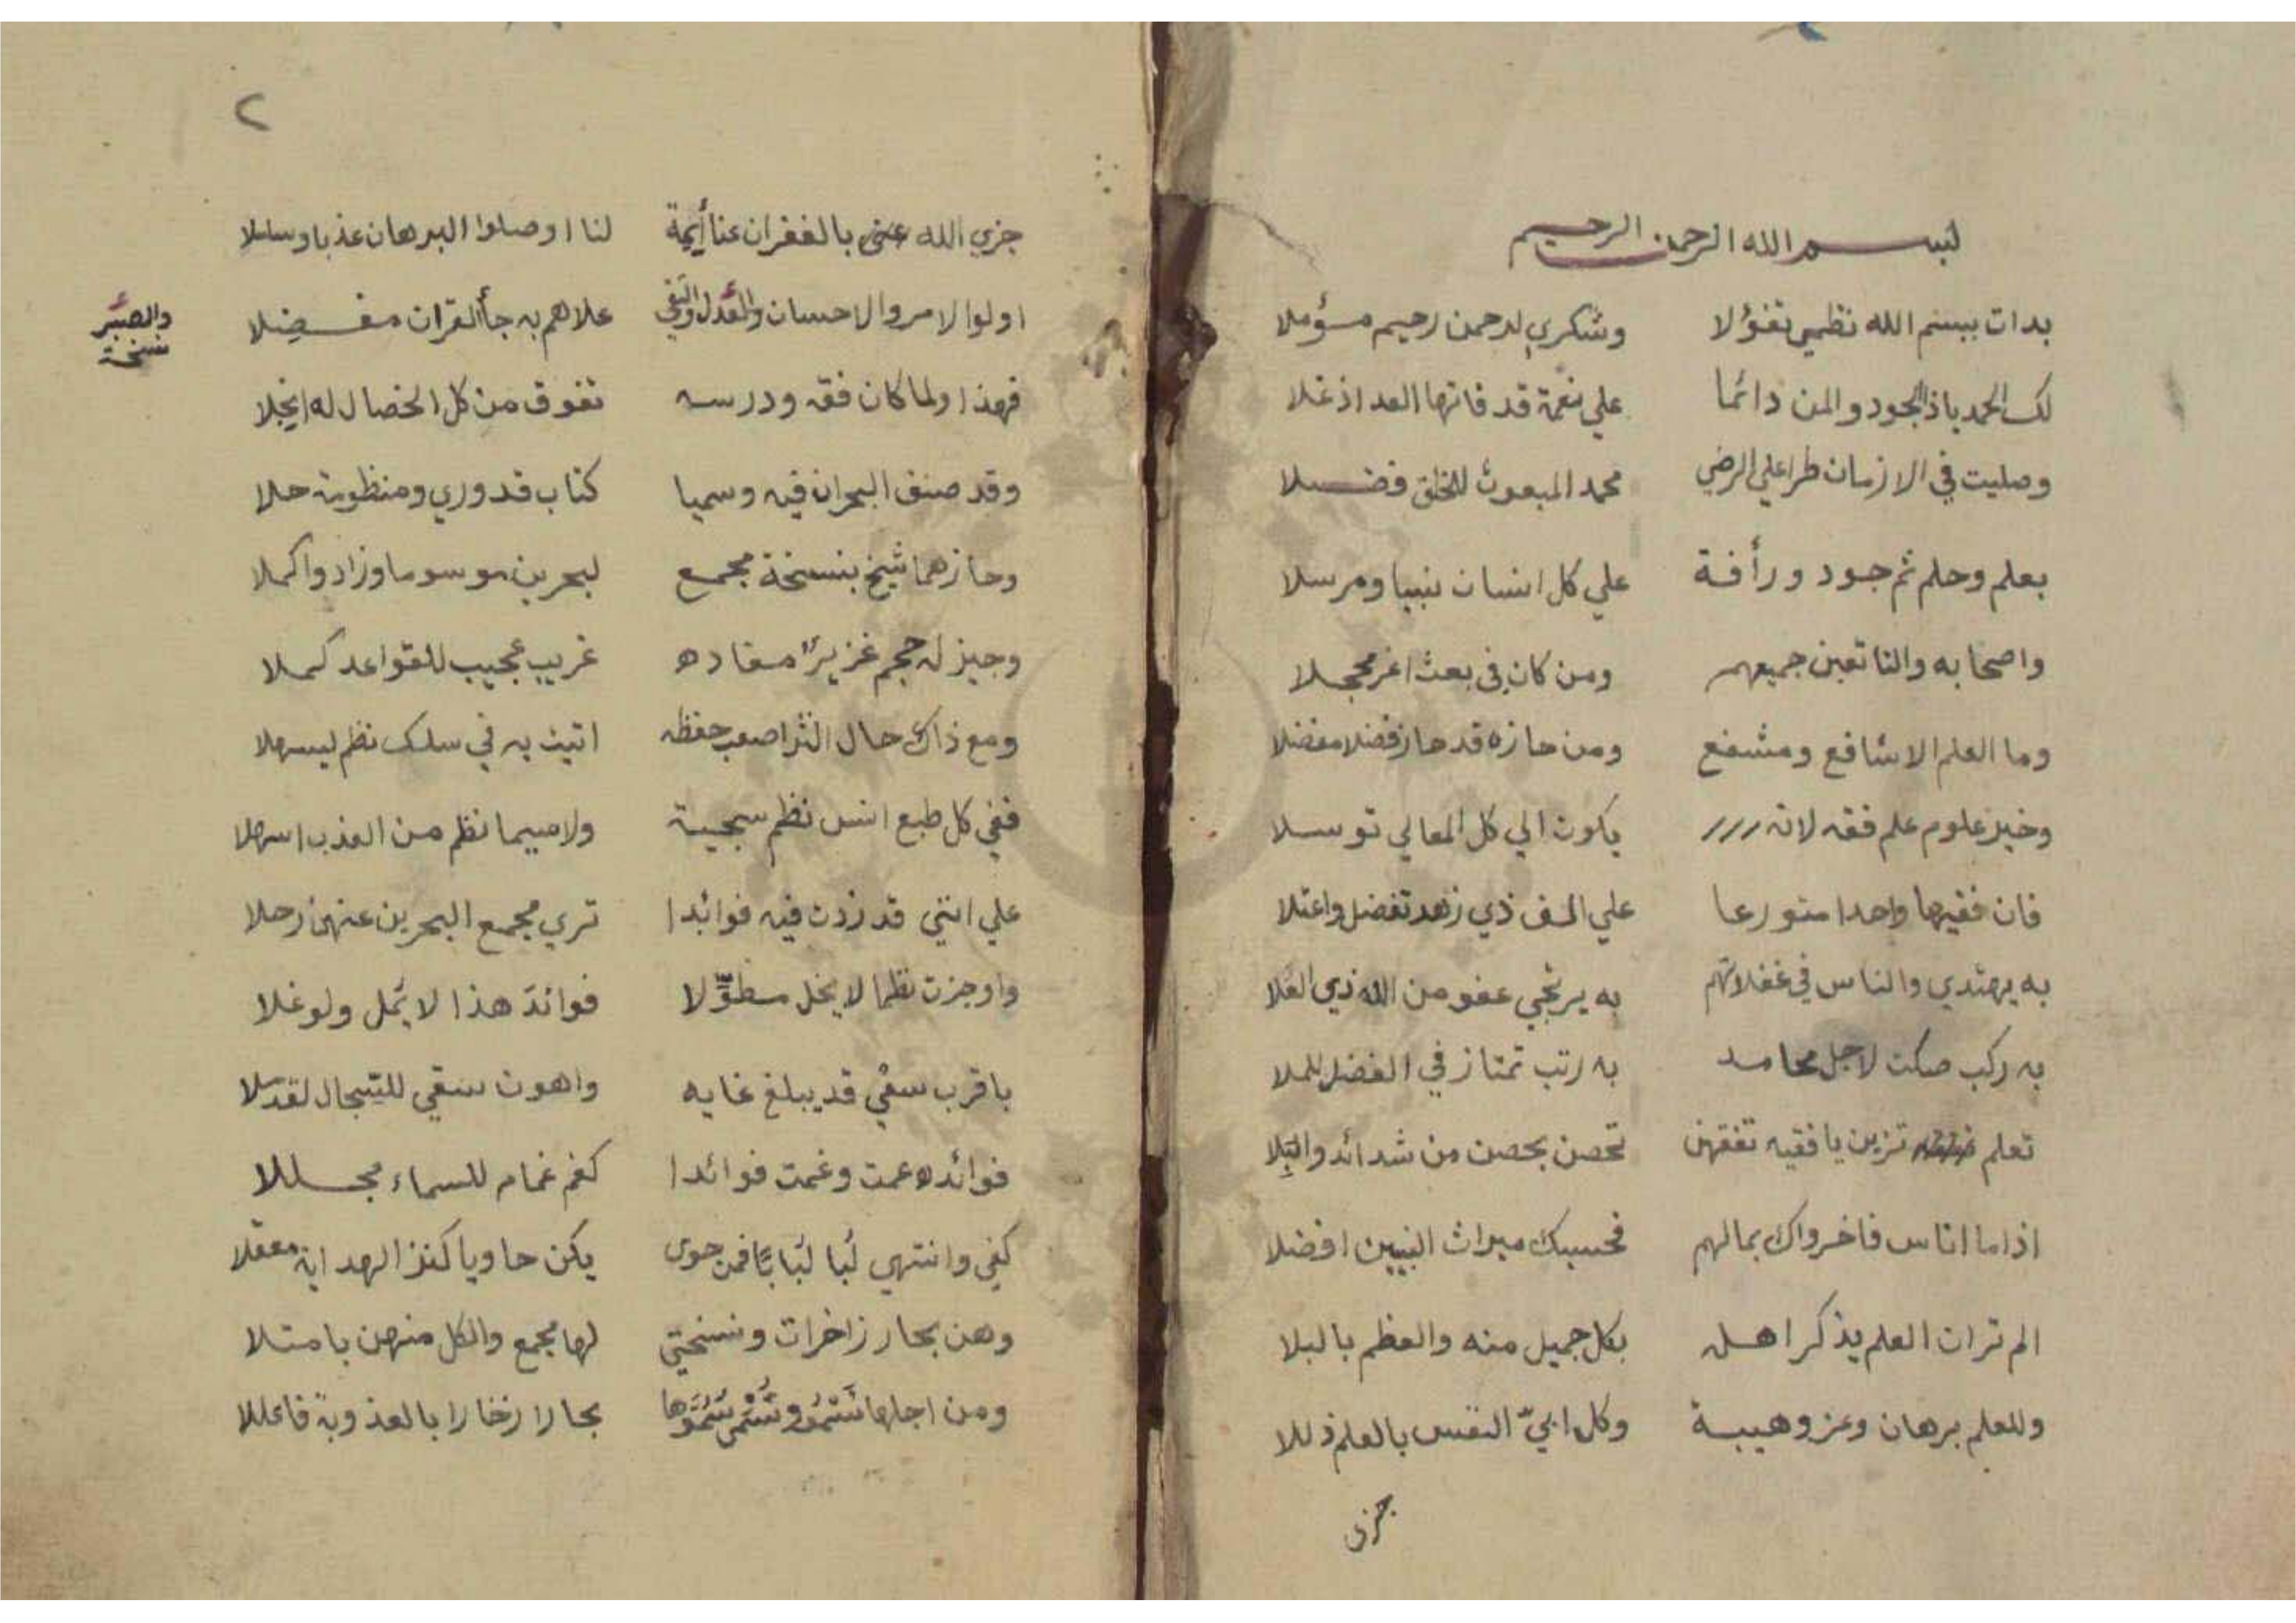 بسم الله الرحمن الرحيم
بدات ببسم الله نظمي تفؤلا وشكري لرحمن رحيم مؤملا
لك الحمد ياذا الجود والمن دائما علي نعمة قد فاتها العد اذ غلا
وصليت في الازمان طرا علي الرضي محمد المبعوث للخلق فضلا
بعلم وحلم ثم جود ورأفة علي كل انسان نبيا ومرسلا
واصحابه والتابعين جميعهم ومن كان في بعث اغر محجلا
وما العلم الا شافع ومشفع ومن حازه قد حاز فضلا مفضلا
وخير علوم علم فقه لانه يكون الي كل المعالي توسلا
فان فقيها واحدا متورعا علي الف ذي زهد تفضل واعتلا
به يهتدي والناس في غفلاتهم به يرتجي عفو من الله ذي العلا
به ركب صكت لاجل محامد به رتب تمتاز في الفضل للملا
تعلم تزين يا فقيه تفقهن تحصن بحصن من شدائد والبلا
اذا ما اناس فاخرواك بمالهم فحسبك ميراث النبيين افضلا
الم تر ان العلم يذكر اهله بكل جميل منه والعظم بالبلا
وللعلم برهان وعز وهيبة وكل ابيّ النفس بالعلم ذللا
جزى
٢
جزي الله بالغفران عنا أيمة لنا اوصلوا البرهان عذبا وسلسلا
اولوا الامر والاحسان والعدل والتقي علاهم به جأ القران مفضلا
والصبر نسخة
فهذا ولما كان فقه ودرسه تفوق من كل الخصال له انجلا
وقد صنف البحران فيه وسميا كتاب قدوري ومنظومة حلا
وحازهما شيخ بنسخة مجمع لبحرين موسوما وزاد واكملا
وجيز له حجم غزير مفاده غريب عجيب للقواعد كملا
ومع ذاك حال النثر اصعب حفظه اتيت به في سلك نظم ليسهلا
ففي كل طبع انس نظم سجية ولا سيما نظم من العذب اسهلا
علي انني قد زدت فيه فوائدا تري مجمع البحرين عنهن زحلا
واوجزت نظما لا يخل مطوّلا فوائد هذا لا يمل ولو غلا
باقرب سعي قد يبلغ غايه واهون سقي للسجال لقد ملا
فوائده عمت وغمت فوائدا كغم غمام للسماء مجللا
كفي وانتهي لبا لبابا فمن حوى يكن حاويا كنز الهداية معقلا
وهن بحار زاخرات ونسختي لها مجمع والكل منهن بامتلا
ومن اجلها بحارا زخارا بالعذوبة فاعللا